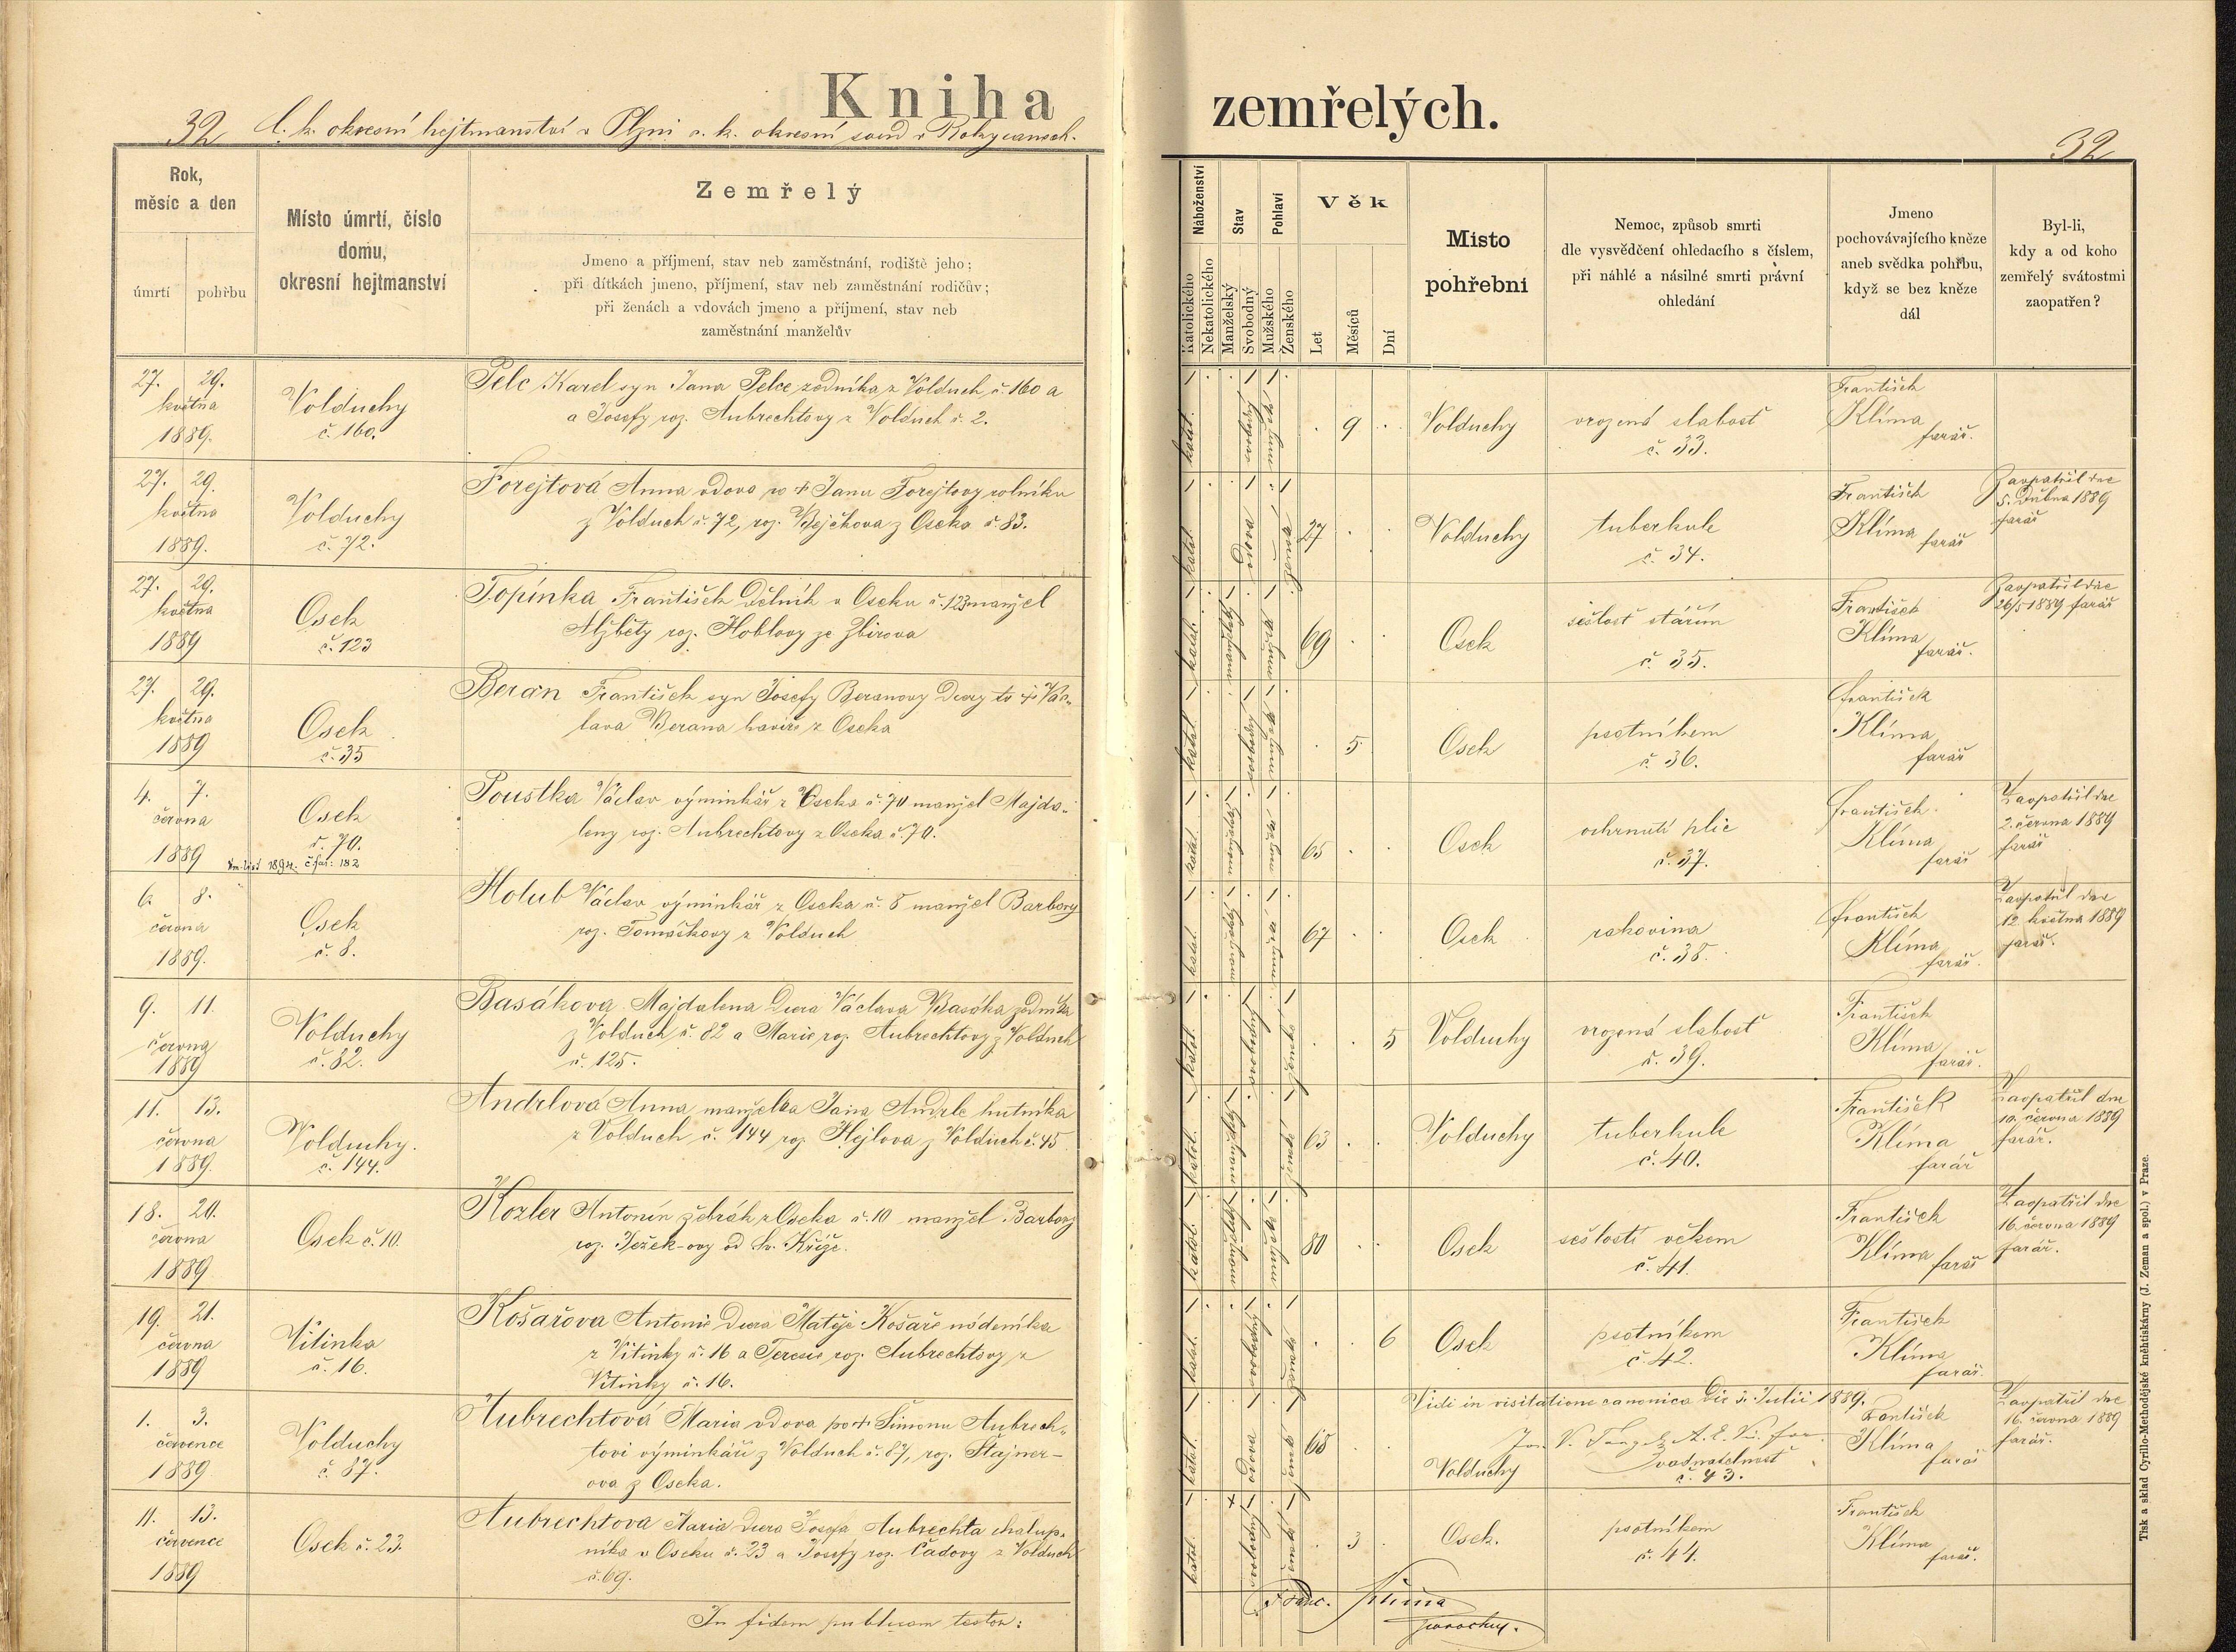 Kniha zemřelých.
32 C. k. okresní hejtmanství v Plzni c. k. okresní soud v Rokycanech. 32
Rok,
měsíc a den
úmrtí
pohřbu
Místo úmrtí, číslo
domu,
okresní hejtmanství
Zemřelý
Jmeno a příjmení, stav neb zaměstnání, rodiště jeho;
při dítkách jmeno, příjmení, stav neb zaměstnání rodičův;
při ženách a vdovách jmeno a příjmení, stav neb
zaměstnání manželův
Náboženství
Katolického
Nekatolického
Stav
Manželský
Svobodný
Pohlaví
Mužského
Ženského
Věk
Let
Měsíců
Dní
Místo
pohřební
Nemoc, způsob smrti
dle vysvědčení ohledacího s číslem,
při náhlé a násilné smrti právní
ohledání
Jmeno
pochovávajícího kněze
aneb svědka pohřbu,
když se bez kněze
dál
Byl-li,
kdy a od koho
zemřelý svátostmi
zaopatřen?
27. 29.
května
1889.
Volduchy
č. 160.
Pelc Karel syn Jana Pelce zedníka z Volduch č. 160 a
a Josefy roz. Aubrechtovy z Volduch č. 2.
katol.
svobodný
mužské
9
Volduchy
vrozená slabost
č. 33.
František
Klíma
farář.
27. 29.
května
1889.
Volduchy
č. 72.
Forejtová Anna vdova po † Janu Forejtovy rolníku
z Volduch č. 72, roz. Bejčkova z Oseka č. 83.
katol.
vdova
ženské
27
Volduchy
tuberkule
č. 34.
František
Klíma farář
Zaopatřil dne
5. dubna 1889
farář
27. 29.
května
1889
Osek
č. 123
Topinka František dělník v Oseku č. 123 manžel
Alžběty roz. Hoblovy ze Zbirova
katol.
69
Osek
sešlost stářím
č. 35.
František
Klíma
farář.
Zaopatřil dne
26/5 1889 farář
27. 29.
května
1889
Osek
č. 35
Beran František syn Josefy Beranovy vdovy to † Vác-
lava Berana havíře z Oseka
katol.
svobodný
mužské
5
Osek
psotníkem
č. 36.
František
Klíma
farář
4. 7.
června
1889
Osek
č. 70.
Poustka Václav výminkář z Oseka č. 70 manžel Majda-
leny roz. Aubrechtovy z Oseka č. 70.
katol.
65
Osek
ochrnutí plic
č. 37.
František
Klíma
farář
Zaopatřil dne
2. června 1889
farář
6. 8.
června
1889.
Osek
č. 8.
Holub Václav výminkář z Oseka č. 8 manžel Barbory
roz. Tomáškovy z Volduch
katol.
67
Osek
rakovina
č. 38.
František
Klíma
farář.
Zaopatřil dne
12. května 1889
farář.
9. 11.
června
1889
Volduchy
č. 82.
Basákova Majdalena dcera Václava Basáka zedníka
z Volduch č. 82 a Marie roz. Aubrechtovy z Volduch
č. 125.
katol.
svobodný
ženské
5
Volduchy
vrozená slabost
č. 39.
František
Klíma
farář.
11. 13.
června
1889.
Volduchy.
č. 144.
Andrlová Anna manželka Jana Andrle hutníka
z Volduch č. 144 roz. Hejlova z Volduch č. 45
katol.
ženské
63
Volduchy
tuberkule
č. 40.
František
Klíma
farář
Zaopatřil dne
10. června 1889
farář.
18. 20.
června
1889
Osek č. 10.
Kozler Antonín žebrák z Oseka č. 10 manžel Barbory
roz. Ježek-ovy od sv. Kříže.
katol.
80
Osek
sešlostí věkem
č. 41.
František
Klíma farář
Zaopatřil dne
16. června 1889
farář.
19. 21.
června
1889
Vitinka
č. 16.
Košařova Antonie dcera Matěje Košaře nádeníka
z Vitinky č. 16 a Teresie roz. Aubrechtovy z
Vitinky č. 16.
katol.
svobodný
ženské
6
Osek
psotníkem
č. 42.
František
Klíma
farář.
1. 3.
července
1889
Volduchy
č. 87.
Aubrechtová Maria vdova po † Šimonu Aubrech-
tovi výminkáři z Volduch č. 87, roz. Štajner-
ova z Oseka.
katol.
vdova
ženské
68
Vidi in visitatione canonica die 3. Julii 1889.
Volduchy
vodnatelnost
č. 43.
František
Klíma
farář
Zaopatřil dne
16. června 1889
farář.
11. 13.
července
1889
Osek č. 23.
Aubrechtova Maria dcera Josefa Aubrechta chalup-
níka v Oseku č. 23 a Josefy roz. Čadovy z Volduch
č. 69.
katol.
svobodný
ženské
3
Osek.
psotníkem
č. 44.
František
Klíma
farář.
In fidem publicam testor:
Franc. Klima
parochus.
Tisk a sklad Cyrillo-Methodějské knihtiskárny (J. Zeman a spol.) v Praze.